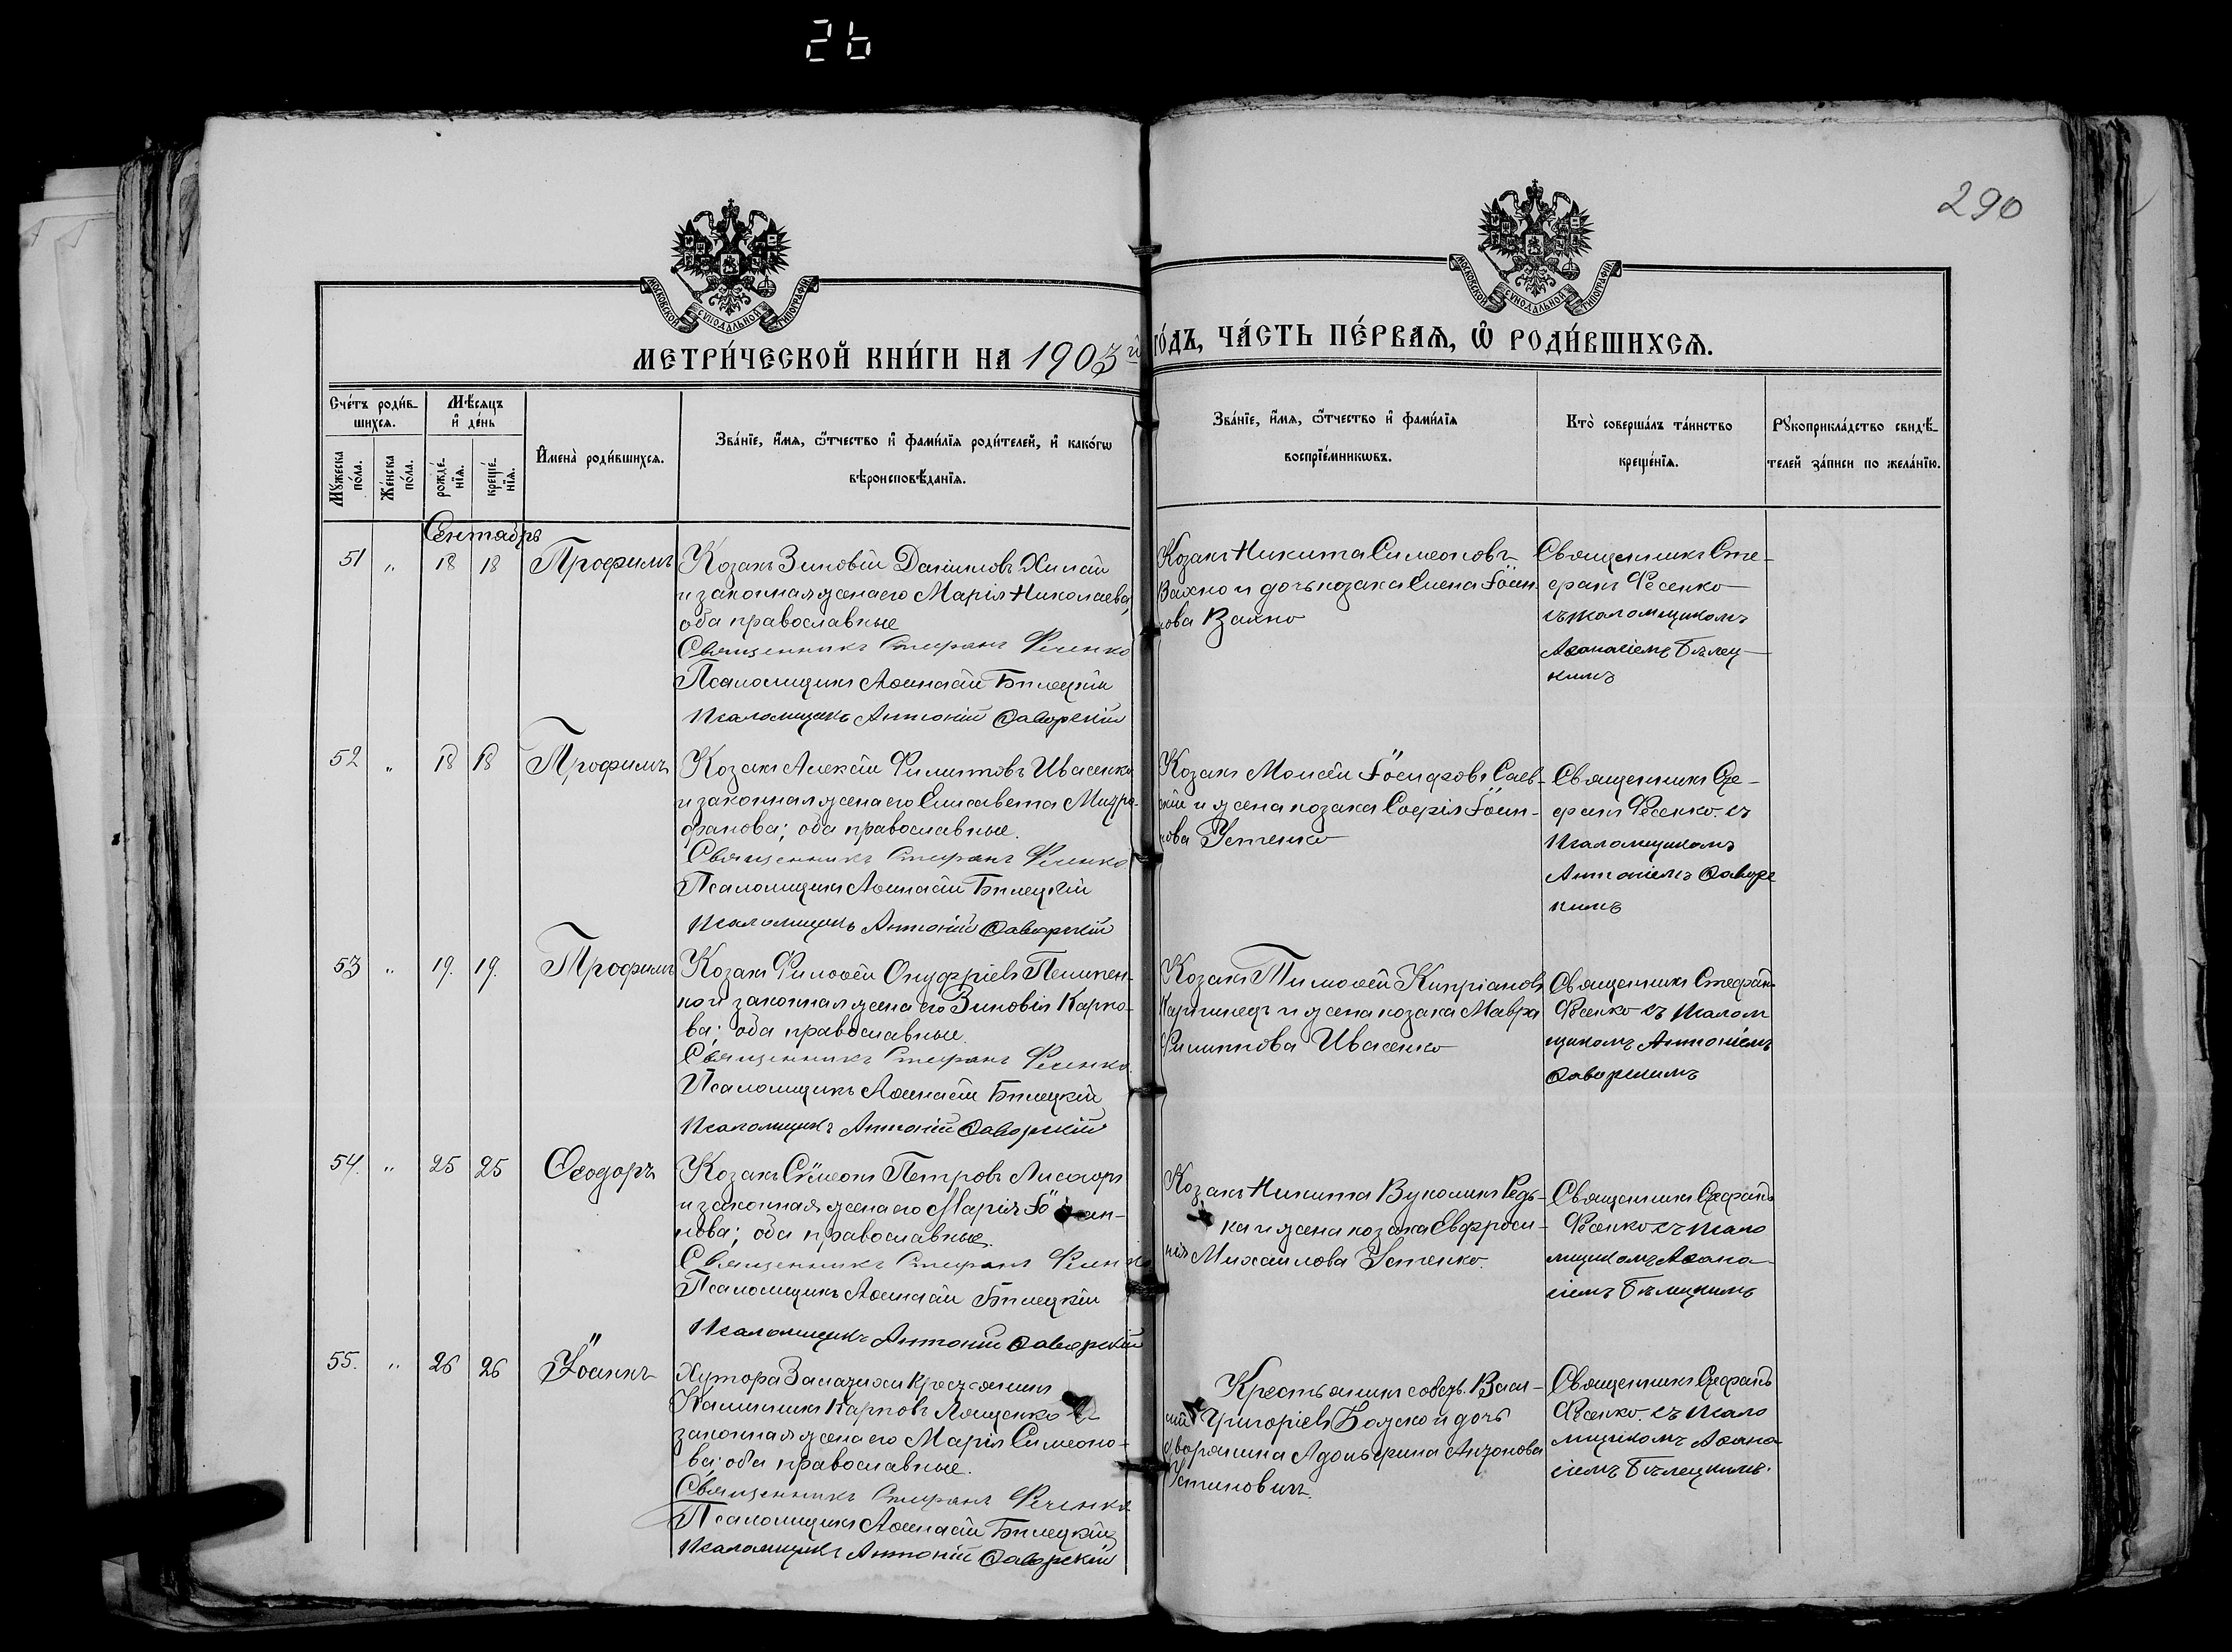 26
290
МОСКОВСКОЙ СѴНОДАЛЬНОЙ ТИПОГРАФІИ
МОСКОВСКОЙ СѴНОДАЛЬНОЙ ТИПОГРАФІИ
МЕТРИ́ЧЕСКОЙ КНИ́ГИ НА 1903й го́дъ, ЧА́СТЬ ПЕ́РВАѦ, Ѡ҆ РОДИ́ВШИХСѦ.
Сче́тъ роди́в-
шихсѧ.
Мѣ́сѧцъ
и҆ де́нь
Мꙋ́жеска
по́ла.
Же́нска
по́ла.
рожде́-
нїѧ.
креще́-
нїѧ.
И҆мена̀ роди́вшихсѧ.
Зва́нїе, и҆́мѧ, ѻ҆́тчество и҆ фами́лїѧ роди́телей, и҆ како́гѡ
вѣроисповѣ́данїѧ.
Зва́нїе, и҆́мѧ, ѻ҆́тчество и҆ фами́лїѧ
воспрїе́мникѡвъ.
Кто̀ соверша́лъ та́инство
креще́нїѧ.
Рꙋкоприкла́дство свидѣ́-
телей за́писи по жела́нїю.
Сентябрь
51 „ 18 18 Трофимъ
Козакъ Зиновій Даниловъ
и законная жена его Марія Николаева,
оба православные
Священникъ Стефанъ Фесенко
Псаломщикъ Аѳанасій Бѣлецкій
Псаломщикъ Антоній
Козакъ Никита Симеоновъ
Вахно и дочь козака Елена Іоан-
нова Вахно
Священникъ Сте-
фанъ Фесенко
съ псаломщикомъ
Аѳанасіемъ Бѣлец-
кимъ
52 „ 18 18 Трофимъ
Козакъ Алексій Филиповъ Ивасенко
и законная жена его Елисавета Митро-
фанова; оба православные.
Священникъ Стефанъ Фесенко
Псаломщикъ Аѳанасій Бѣлецкій
Псаломщикъ Антоній
Козакъ Моисей Іосифовъ
и жена козака Софія Іоан-
нова Устенко
Священникъ Сте-
фанъ Фесенко. съ
псаломщикомъ
Антоніемъ
кимъ
53 „ 19. 19. Трофимъ
Козакъ Филофей Онуфріевъ Пелипен-
ко и законная жена его Зиновія Карпо-
ва; оба православные.
Священникъ Стефанъ Фесенко
Псаломщикъ Аѳанасій Бѣлецкій
Псаломщикъ Антоній
Козакъ Тимофей Кипріановъ
и жена козака Мавра
Филиппова Ивасенко
Священникъ Стефанъ
Фесенко съ псалом
щикомъ Антоніемъ
54. „ 25 25 Ѳеодоръ
Козакъ Сѵмеонъ Петровъ Лисогоръ
и законная жена его Марія Іоан-
нова; оба православные.
Священникъ Стефанъ Фесенко
Псаломщикъ Аѳанасій Бѣлецкій
Псаломщикъ Антоній
Козакъ Никита Редь-
ка и жена козака Евфроси-
нія Михаилова Устенко.
Священникъ Стефанъ
Фесенко съ псало
мщикомъ Аѳана-
сіемъ Бѣлецкимъ
55. „ 26 26 Іоаннъ
Хутора крестьянинъ
Карповъ Лященко и
законная жена его Марія Симеоно-
ва; оба православные.
Священникъ Стефанъ Фесенко
Псаломщикъ Аѳанасій Бѣлецкій
Псаломщикъ Антоній
Крестьянинъ собств. Васи-
лій Григоріевъ и дочь
дворянина Антонова
Устиновичъ.
Священникъ Стефанъ
Фесенко. съ псало
мщикомъ Аѳана-
сіемъ Бѣлецкимъ.